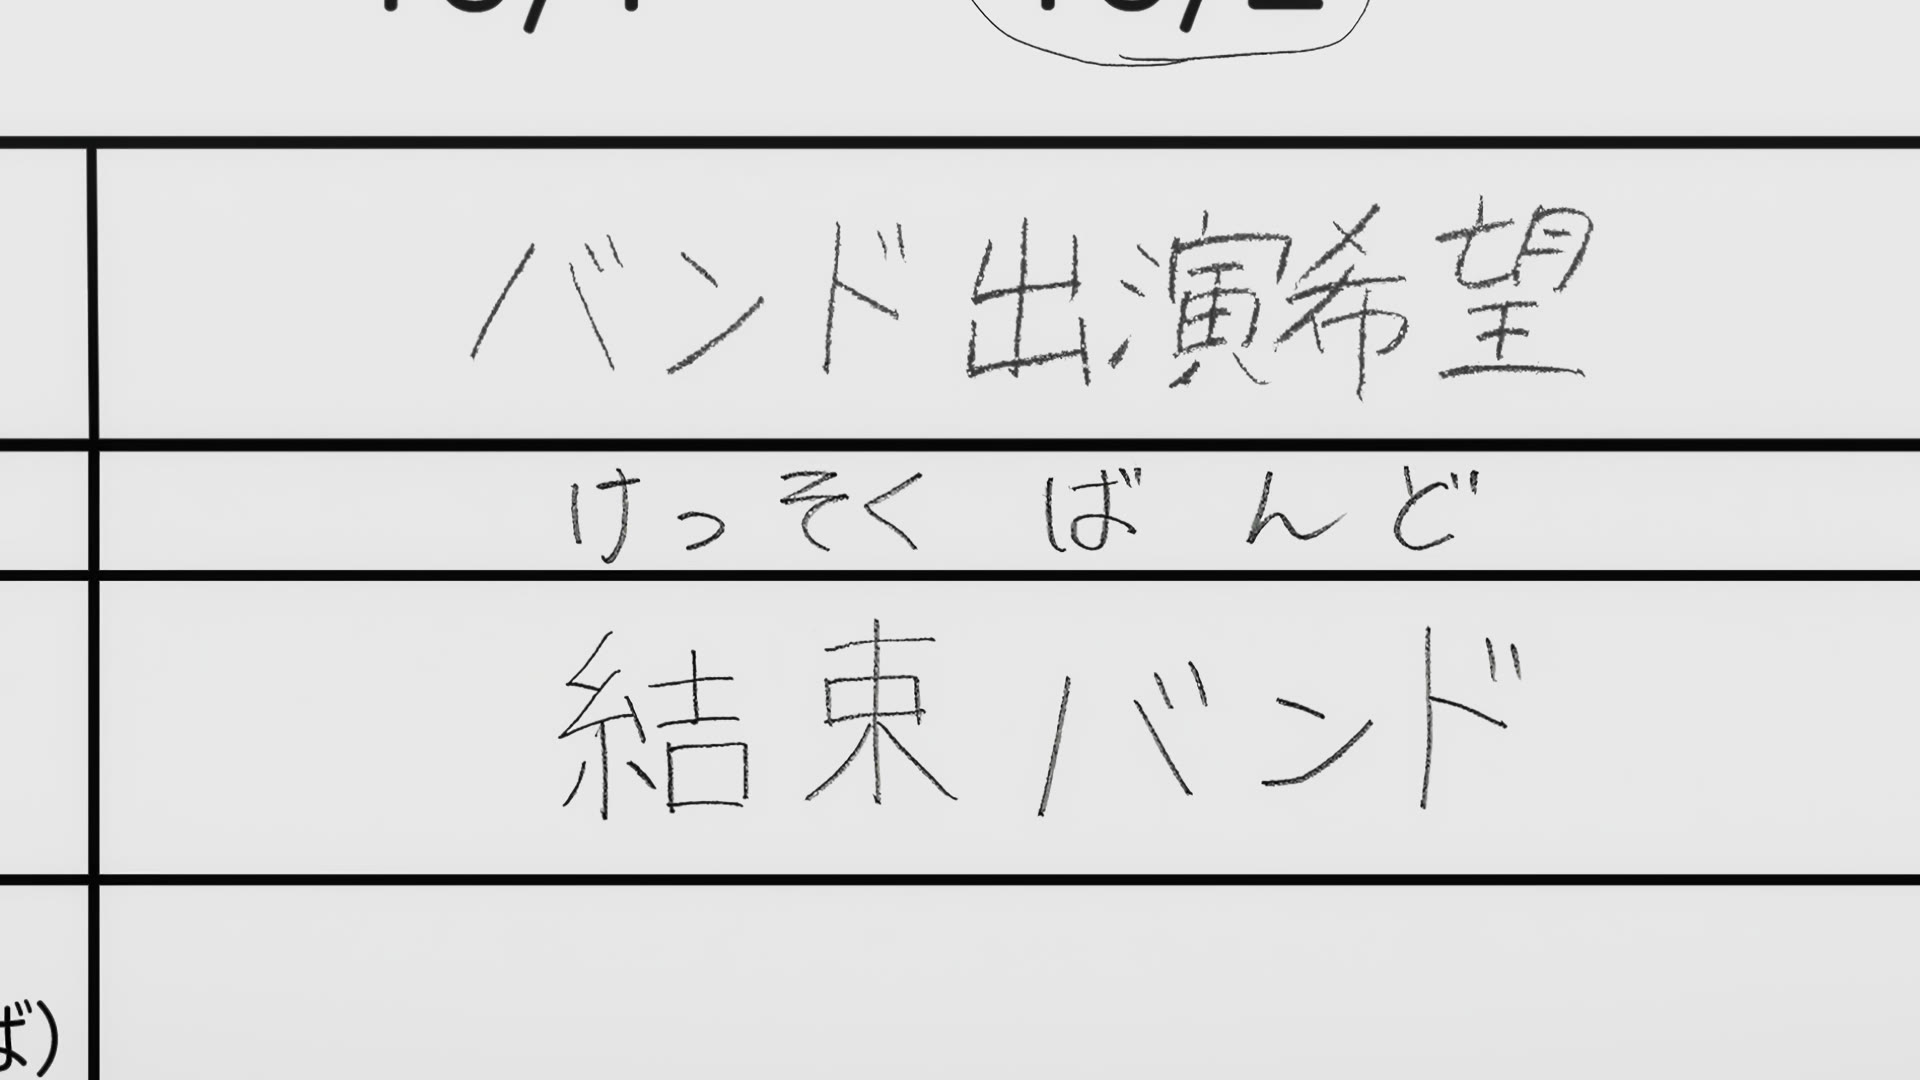 バンド出演希望
けっそくばんど
結束バンド
ば)